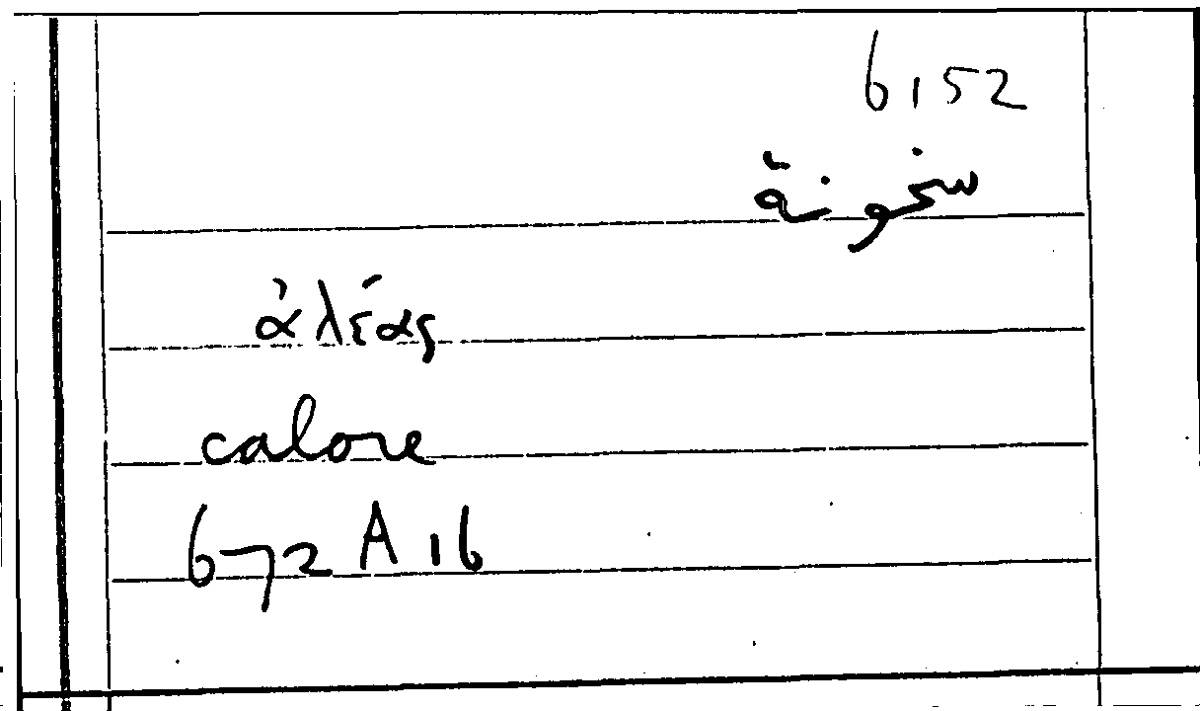 6,52
سخونة
ἀλέας
calore
672 A 16